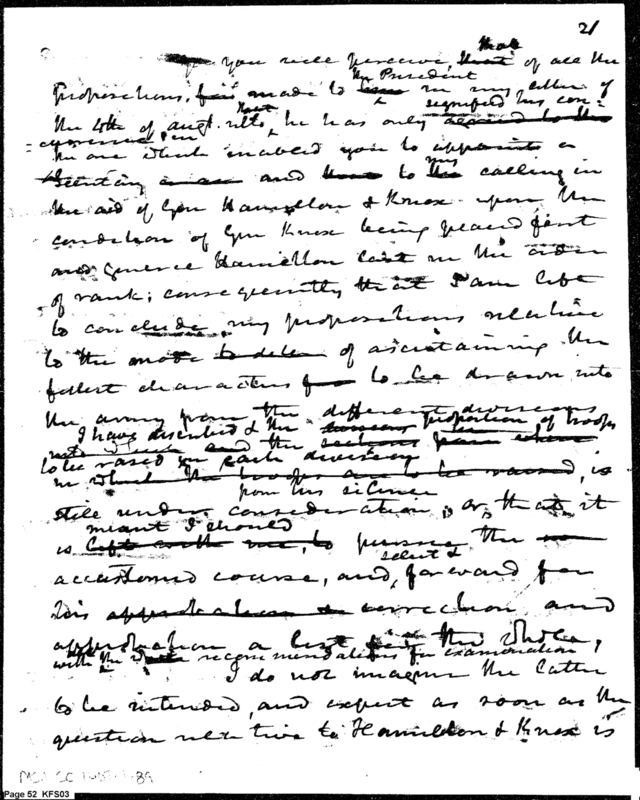 21
you will perceive, that of all the
the President
propositions, made to in my letter of
that signified his con=
the 4th of Augt. ulto, he has only agreed to the
currence, in
the one which enabled you to appoint a
my
Secretary and to calling in
the aid of Gen Hamilton & Knox upon the
condition of Gen Knox being placed first
and General Hamilton last in the order
of rank; consequently that I am left
to conclude, my propositions relative
to the mode of ascertaining the
fittest characters to be drawn into
the army from the different divisions
I have described & the proportion of troops
and the sections from where
to be raised in each division
in which the troops are to be raised, is
from his silence
still under consideration, or, that it
meant I should
is left with me, to pursue the
select &
accustomed course, and, forward for
his approbation correction and
approbation a list the whole,
with the recommendations for examination
I do not imagine the latter
to be intended, and expect as soon as the
question relative to Hamilton & Knox is
Page 52 KFS03